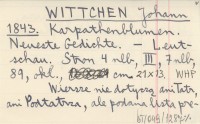 WITTCHEN Johann
1843. Karpathenblumen.
Neueste Gedichte. — Leut-
schau. Stron 4 nlb, III, 7 nlb,
89, okł., cm. 21x13. WHP
Wiersze nie dotyczą
ani Podtatrza, ale podana lista pre-